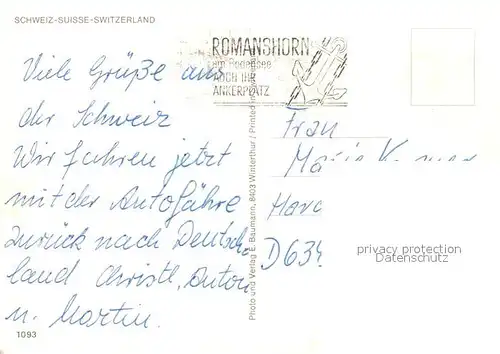 SCHWEIZ-SUISSE-SWITZERLAND
ROMANSHORN
am Bodensee
AUCH IHR
ANKERPLATZ
Viele Grüße aus
der Schweiz
Wir fahren jetzt
mit der Autofähre
zurück nach Deutsch-
land Christl, Anton
u. Martin.
Photo und Verlag E. Baumann, 8403 Winterthur / Printed in
Frau
Maria
D634
privacy protection
Datenschutz
1093